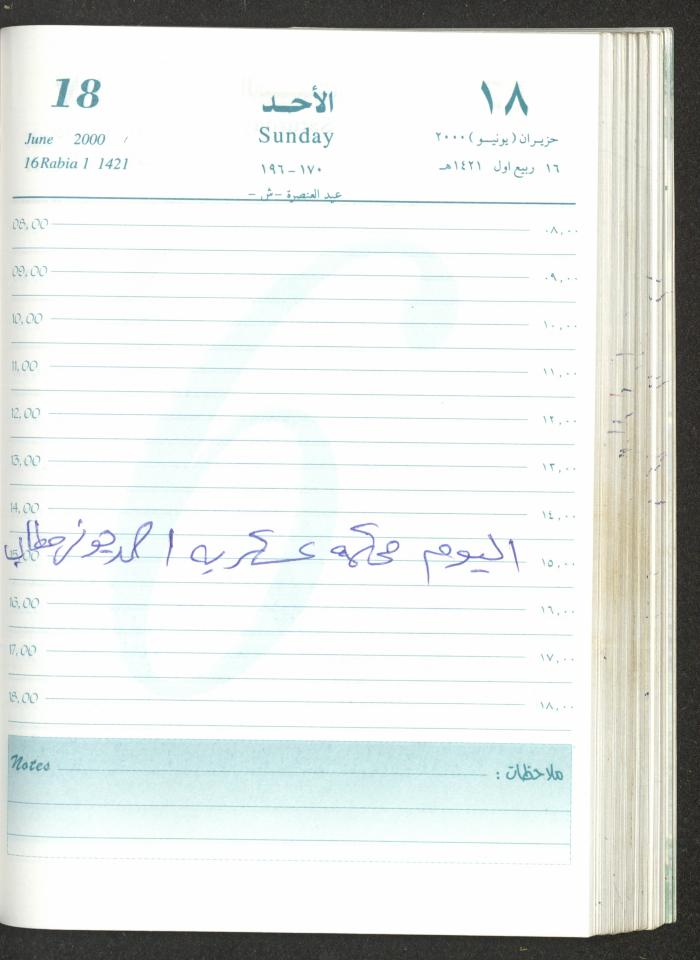 18 الأحد ١٨
June 2000 Sunday حزيران (يونيو) ٢٠٠٠
16 Rabia 1 1421 ١٧٠-١٩٦ ١٦ ربيع اول ١٤٢١هـ
عيد العنصرة -ش-
08,00 ٠٨,٠٠
09,00 ٠٩,٠٠
10,00 ١٠,٠٠
11,00 ١١,٠٠
12,00 ١٢,٠٠
13,00 ١٣,٠٠
14,00 ١٤,٠٠
اليوم محكمة عسكرية احمد
15,00 ١٥,٠٠
16,00 ١٦,٠٠
17,00 ١٧,٠٠
18,00 ١٨,٠٠
Notes ملاحظات :